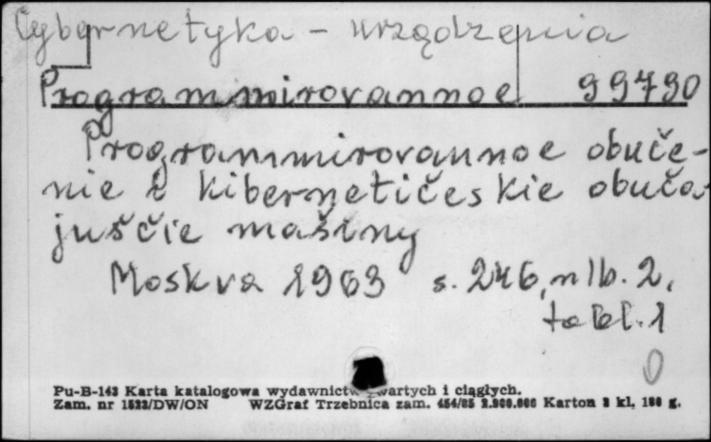 Cybernetyka - urządzenia
Programmirovannoe 99790
Programmirovannoe obuče-
nie i kibernetičeskie obuča-
juščie mašiny
Moskva 1963 s. 246, nlb. 2,
tabl. 1
0
Pu-B-143 Karta katalogowa wydawnictw zwartych i ciągłych.
Zam. nr 1522/DW/ON WZGraf Trzebnica zam. 454/85 2.000.000 Karton 3 kl. 180 g.